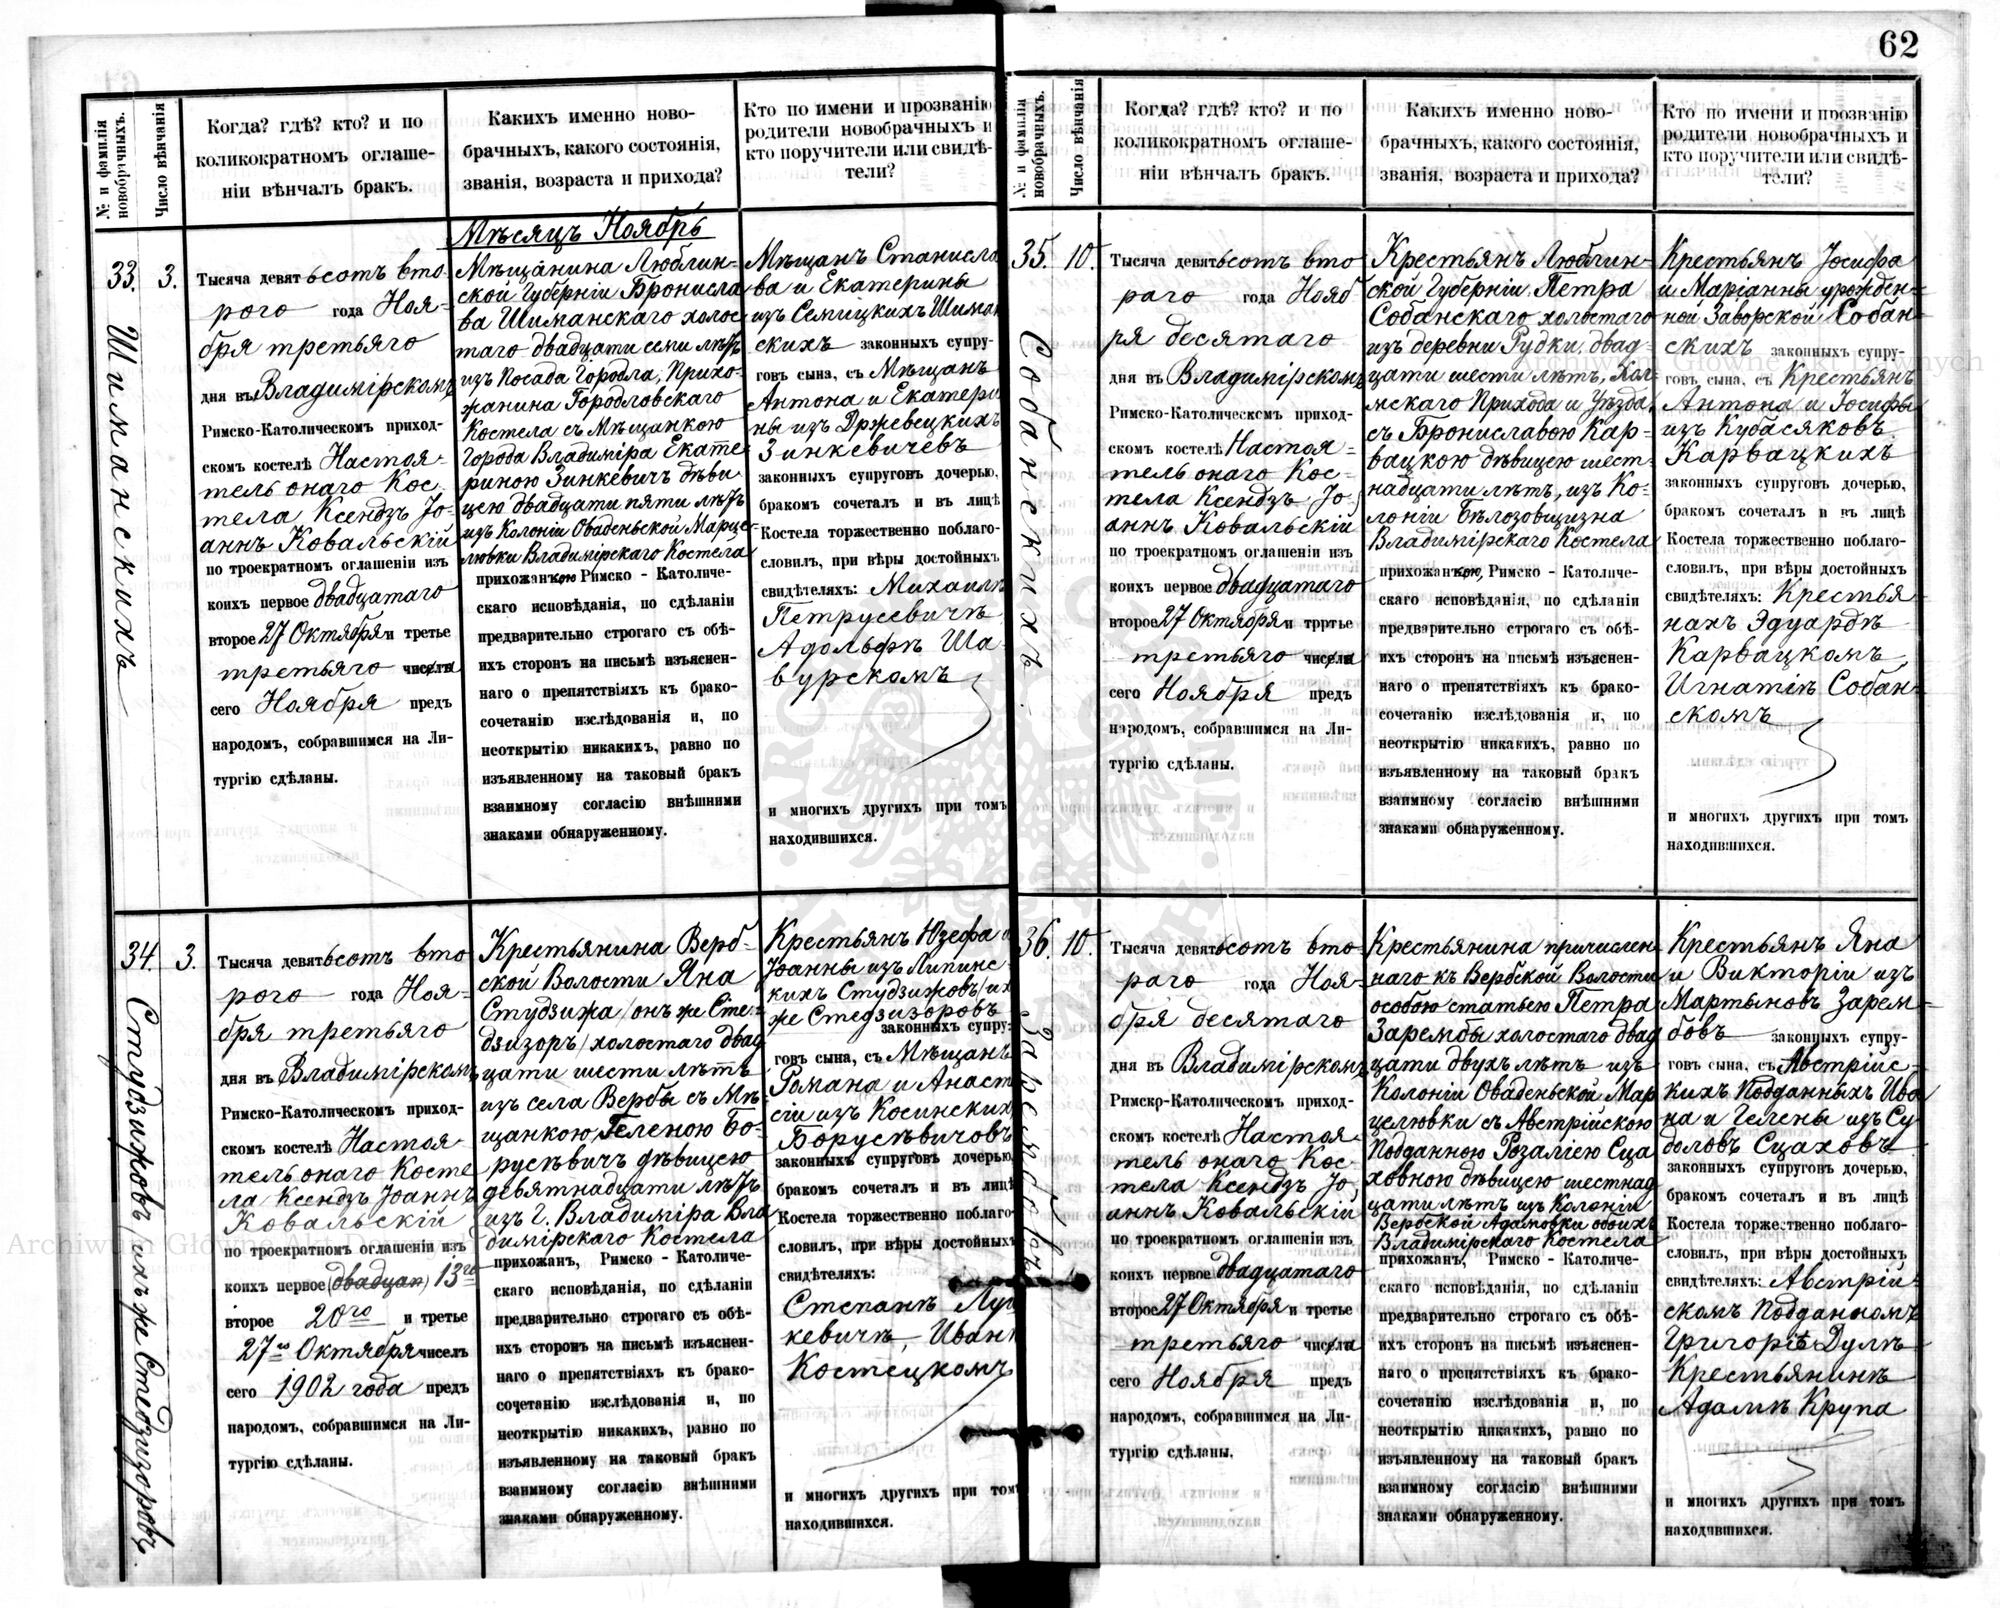 62
№ и фамилія новобрачныхъ.
Число вѣнчанія
Когда? гдѣ? кто? и по
коликократномъ оглаше-
ніи вѣнчалъ бракъ.
Какихъ именно ново-
брачныхъ, какого состоянія,
званія, возраста и прихода?
Кто по имени и прозванію
родители новобрачныхъ и
кто поручители или свидѣ-
тели?
Мѣсяцъ Ноябрь
33.
Шиманскихъ
3.
Тысяча девятьсотъ вто
рого года Ноя-
бря третьяго
дня въ Владимірскомъ
Римско-Католическомъ приход-
скомъ костелѣ Настоя-
тель онаго Кос-
тела Ксендзъ Іо-
аннъ Ковальскій
по троекратномъ оглашеніи изъ
коихъ первое двадцатаго
второе 27 Октября и третье
третьяго числа
сего Ноября предъ
народомъ, собравшимся на Ли-
тургію сдѣланы.
Мѣщанина Люблин-
ской Губерніи Бронисла
ва Шиманскаго холос-
таго двадцати семи лѣтъ
изъ Посада Городла, Прихо-
жанина Городловскаго
Костела съ Мѣщанкою
Города Владиміра Екате-
риною Зинкевичъ дѣви
цею двадцати пяти лѣтъ
изъ Колоніи Оваденьской Марце-
лювки Владимірскаго Костела
прихожанкою Римско - Католиче-
скаго исповѣданія, по сдѣланіи
предварительно строгаго съ обѣ-
ихъ сторонъ на письмѣ изъяснен-
наго о препятствіяхъ къ брако-
сочетанію изслѣдованія и, по
неоткрытію никакихъ, равно по
изъявленному на таковый бракъ
взаимному согласію внѣшними
знаками обнаруженному.
Мѣщанъ Станисла
ва и Екатерины
изъ Семицкихъ Шиман
скихъ законныхъ супру-
говъ сына, съ Мѣщанъ
Антона и Екатери
ны изъ Држевецкихъ
Зинкевичевъ
законныхъ супруговъ дочерью,
бракомъ сочеталъ и въ лицѣ
Костела торжественно поблаго-
словилъ, при вѣры достойныхъ
свидѣтеляхъ: Михаилѣ
Петрусевичѣ
Адольфѣ Ша-
вурскомъ
и многихъ другихъ при томъ
находившихся.
34.
Студзижовъ инъ же Стедзизоровъ
3.
Тысяча девятьсотъ вто
рого года Ноя-
бря третьяго
дня въ Владимірскомъ
Римско-Католическомъ приход-
скомъ костелѣ Настоя-
тель онаго Косте
ла Ксендзъ Іоаннъ
Ковальскій
по троекратномъ оглашеніи изъ
коихъ первое (двадцат) 13го
второе 20го и третье
27го Октября чиселъ
сего 1902 года предъ
народомъ, собравшимся на Ли-
тургію сдѣланы.
Крестьянина Верб-
ской Волости Яна
Студзижа /онъ же Сте-
дзизоръ/ холостаго двад
цати шести лѣтъ
изъ села Вербы съ Мѣ-
щанкою Геленою Бо-
русѣвичъ дѣвицею
девятнадцати лѣтъ
изъ г. Владиміра Вла
димірскаго Костела
прихожан, Римско - Католиче-
скаго исповѣданія, по сдѣланіи
предварительно строгаго съ обѣ-
ихъ сторонъ на письмѣ изъяснен-
наго о препятствіяхъ къ брако-
сочетанію изслѣдованія и, по
неоткрытію никакихъ, равно по
изъявленному на таковый бракъ
взаимному согласію внѣшними
знаками обнаруженному.
Крестьянъ Юзефа и
Іоанны изъ Липинс-
кихъ Студзижовъ/их
же Стедзизоровъ
законныхъ супру-
говъ сына, съ Мѣщанъ
Романа и Анаст
сіи изъ Косинских
Борусѣвичовъ
законныхъ супруговъ дочерью,
бракомъ сочеталъ и въ лицѣ
Костела торжественно поблаго-
словилъ, при вѣры достойныхъ
свидѣтеляхъ:
Степанѣ Луц
кевичѣ, Иванѣ
Костецкомъ
и многихъ другихъ при томъ
находившихся.
№ и фамилія новобрачныхъ.
Число вѣнчанія
Когда? гдѣ? кто? и по
коликократномъ оглаше-
ніи вѣнчалъ бракъ.
Какихъ именно ново-
брачныхъ, какого состоянія,
званія, возраста и прихода?
Кто по имени и прозванію
родители новобрачныхъ и
кто поручители или свидѣ-
тели?
35.
Собанскихъ
10.
Тысяча девятьсотъ вто
раго года Нояб
ря десятаго
дня въ Владимірскомъ
Римско-Католическомъ приход-
скомъ костелѣ Настоя-
тель онаго Кос-
тела Ксендзъ Іо-
аннъ Ковальскій
по троекратномъ оглашеніи изъ
коихъ первое двадцатаго
второе 27 Октября и трртье
третьяго числа
сего Ноября предъ
народомъ, собравшимся на Ли-
тургію сдѣланы.
Крестьянъ Люблин-
ской Губерніи Петра
Собанскаго холостаго
изъ деревни Рудки, двад-
цати шести лѣтъ, Хол-
мскаго Прихода и Уѣзда,
съ Брониславою Кар-
вацкою дѣвицею шест-
надцати лѣтъ, изъ Ко-
лоніи Бѣлозовщизна
Владимірскаго Костела
прихожанкою, Римско - Католиче-
скаго исповѣданія, по сдѣланіи
предварительно строгаго съ обѣ-
ихъ сторонъ на письмѣ изъяснен-
наго о препятствіяхъ къ брако-
сочетанію изслѣдованія и, по
неоткрытію никакихъ, равно по
изъявленному на таковый бракъ
взаимному согласію внѣшними
знаками обнаруженному.
Крестьянъ Іосифа
и Маріанны урожден-
ной Заворской Собан-
скихъ законныхъ супру-
говъ сына, съ Крестьянъ
Антона и Іосифы
изъ Кубасяковъ
Карвацкихъ
законныхъ супруговъ дочерью,
бракомъ сочеталъ и въ лицѣ
Костела торжественно поблаго-
словилъ, при вѣры достойныхъ
свидѣтеляхъ: Крестья
нахъ Эдуардѣ
Карвацкомъ,
Игнатіѣ Собан-
скомъ
и многихъ другихъ при томъ
находившихся.
36.
Зарембовъ
10.
Тысяча девятьсотъ вто
раго года Ноя-
бря десятаго
дня въ Владимірскомъ
Римско-Католическомъ приход-
скомъ костелѣ Настоя-
тель онаго Кос-
тела Ксендзъ Іо-
аннъ Ковальскій
по троекратномъ оглашеніи изъ
коихъ первое двадцатаго
второе 27 Октября и третье
третьяго числа
сего Ноября предъ
народомъ, собравшимся на Ли-
тургію сдѣланы.
Крестьянина причислен-
наго къ Вербской Волости
особою статьею Петра
Зарембы холостаго двад
цати двухъ лѣтъ изъ
Колоніи Оваденьской Мар
целювки съ Австрійскою
Подданною Розаліею Сца
ховною дѣвицею шестнад
цати лѣтъ изъ Колоніи
Вербской Адамовки обоихъ
Владимірскаго Костела
прихожан, Римско - Католиче-
скаго исповѣданія, по сдѣланіи
предварительно строгаго съ обѣ-
ихъ сторонъ на письмѣ изъяснен-
наго о препятствіяхъ къ брако-
сочетанію изслѣдованія и, по
неоткрытію никакихъ, равно по
изъявленному на таковый бракъ
взаимному согласію внѣшними
знаками обнаруженному.
Крестьянъ Яна
и Викторіи изъ
Мартыновъ Зарем-
бовъ законныхъ супру-
говъ сына, съ Австрійс-
кихъ Подданныхъ Ива
на и Гелены изъ Су
доловъ Сцаховъ
законныхъ супруговъ дочерью,
бракомъ сочеталъ и въ лицѣ
Костела торжественно поблаго-
словилъ, при вѣры достойныхъ
свидѣтеляхъ: Австрій-
скомъ Подданномъ
Григоріѣ Дулѣ
Крестьянинѣ
Адамѣ Крупа
и многихъ другихъ при томъ
находившихся.
Archiwum Główne Akt Dawnych